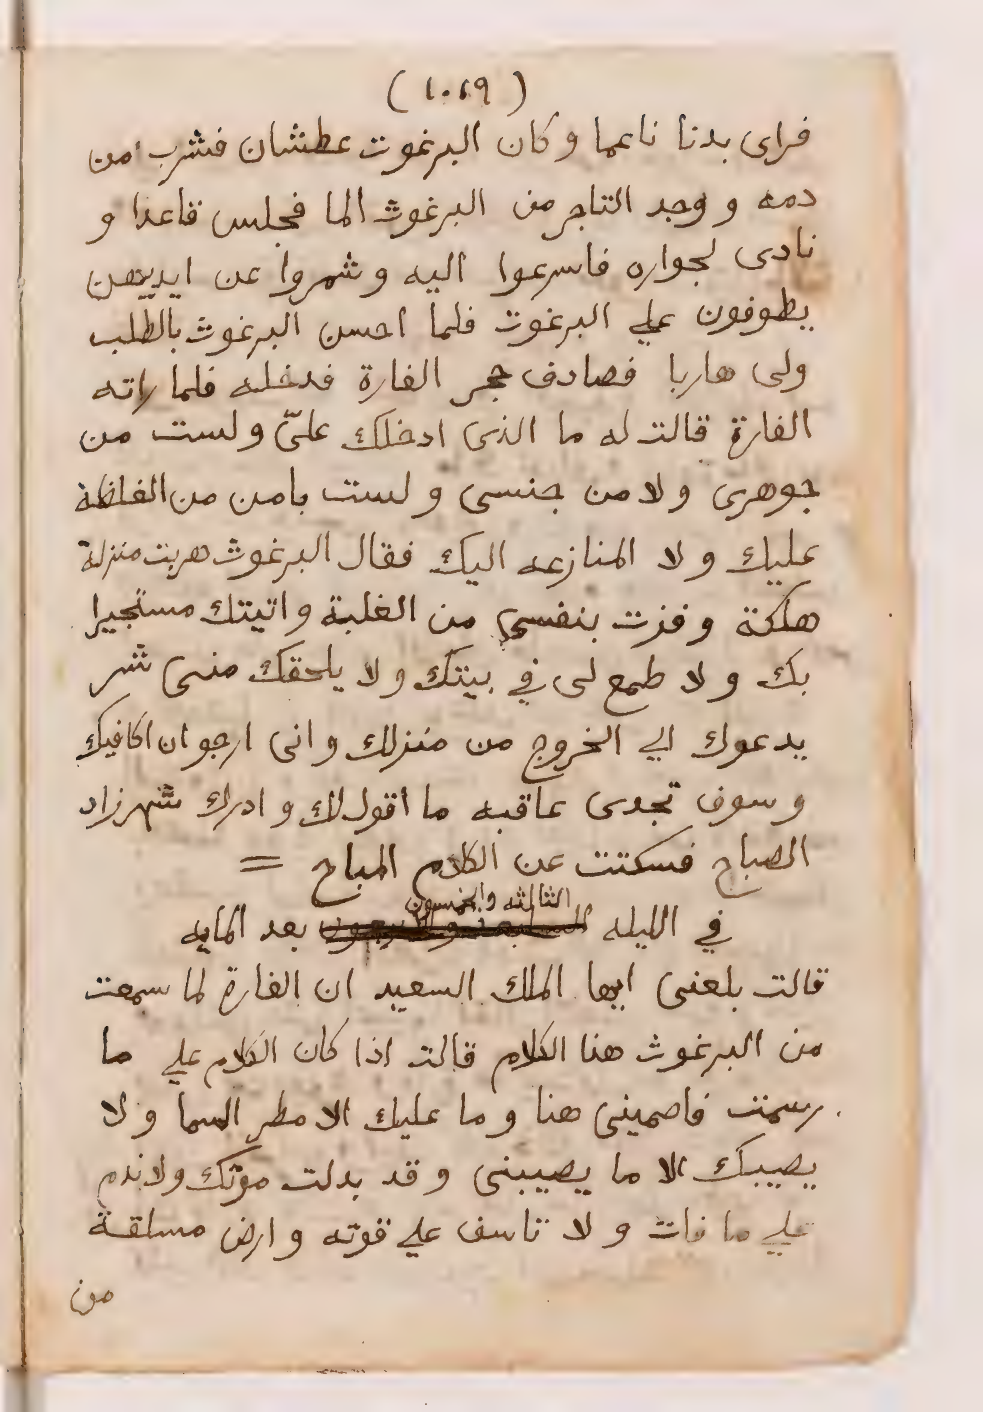 (١٠١٩)
فراى بدنا ناعما و كان البرغوت عطشان فشرب من
دمه و وجد التاجر من البرغوث الما فجلس قاعدا و
نادى لجواره فاسرعوا اليه و شمروا عن ايديهن
يطوفون علي البرغوت فلما احسن البرغوث بالطلب
ولى هاربا فصادف حجر الفارة فدخله فلما راته
الفارة قالت له ما الذى ادخلك علىّ و لست من
جوهرى و لا من جنسى و لست بامن من الغلظة
عليك و لا المنازعه اليك فقال البرغوث هربت منزلة
هلكة و فزت بنفسي من الغلبة و اتيتك مستجيرا
بك و لا طمع لى في بيتك و لا يلحقك منى شر
يدعوك الي الخروج من منزلك و انى ارجو ان اكافيك
و سوف تجدى عاقبه ما اقول لك و ادرك شهرزاد
الصباح فسكتت عن الكلام المباح =
الثالثه والخمسون
في الليله بعد المايه
قالت بلغنى ايها الملك السعيد ان الفارة لما سمعت
من البرغوث هذا الكلام قالت اذا كان الكلام علي ما
رسمت فاصمينى هنا و ما عليك الا مطر السما و لا
يصيبك الا ما يصيبنى و قد بدلت موتك ولا ندم
علي ما فات و لا تاسف علي قوته و ارض مسلقة
من